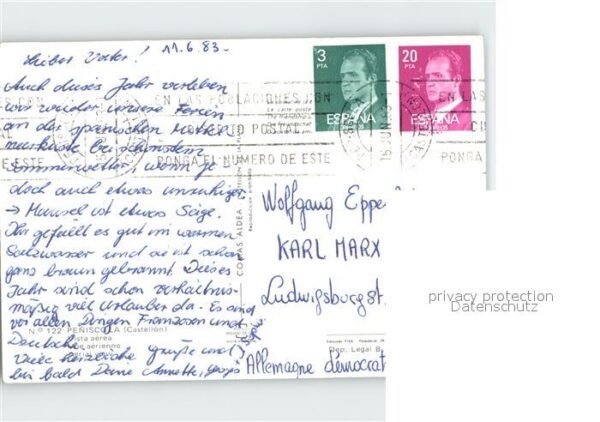 Lieber Vater! 11.6.83.-
Auch dieses Jahr verleben
wir wieder unsere Ferien
an der spanischen
bei schönstem
Sommerwetter, wenn
doch auch etwas unruhiger
→ ist etwas
Ihr gefällt es gut im warmen
Salzwasser und sie ist schon
ganz braun gebrannt. Dieses
Jahr sind schon verhältnis-
mäßig viel Urlauber da. Es sind
vor allen Dingen Franzosen und
Deutsche
Viele herzliche Grüße und
bis bald Deine Annette,
3
PTA
ESPAÑA
20
PTA
ESPAÑA
EN LAS POBLACIONES CON
DISTRITO POSTAL
PONGA EL NUMERO DE ESTE
EN LAS
PONGA
DE ESTE
Nº 122 PEÑISCOLA (Castellón)
Vista aérea
Vue aérienne
Aerial view
COMAS ALDEA
Dep. Legal B.
Wolfgang
KARL MARX
Ludwigsburgst.
Allemagne democrat
privacy protection
Datenschutz